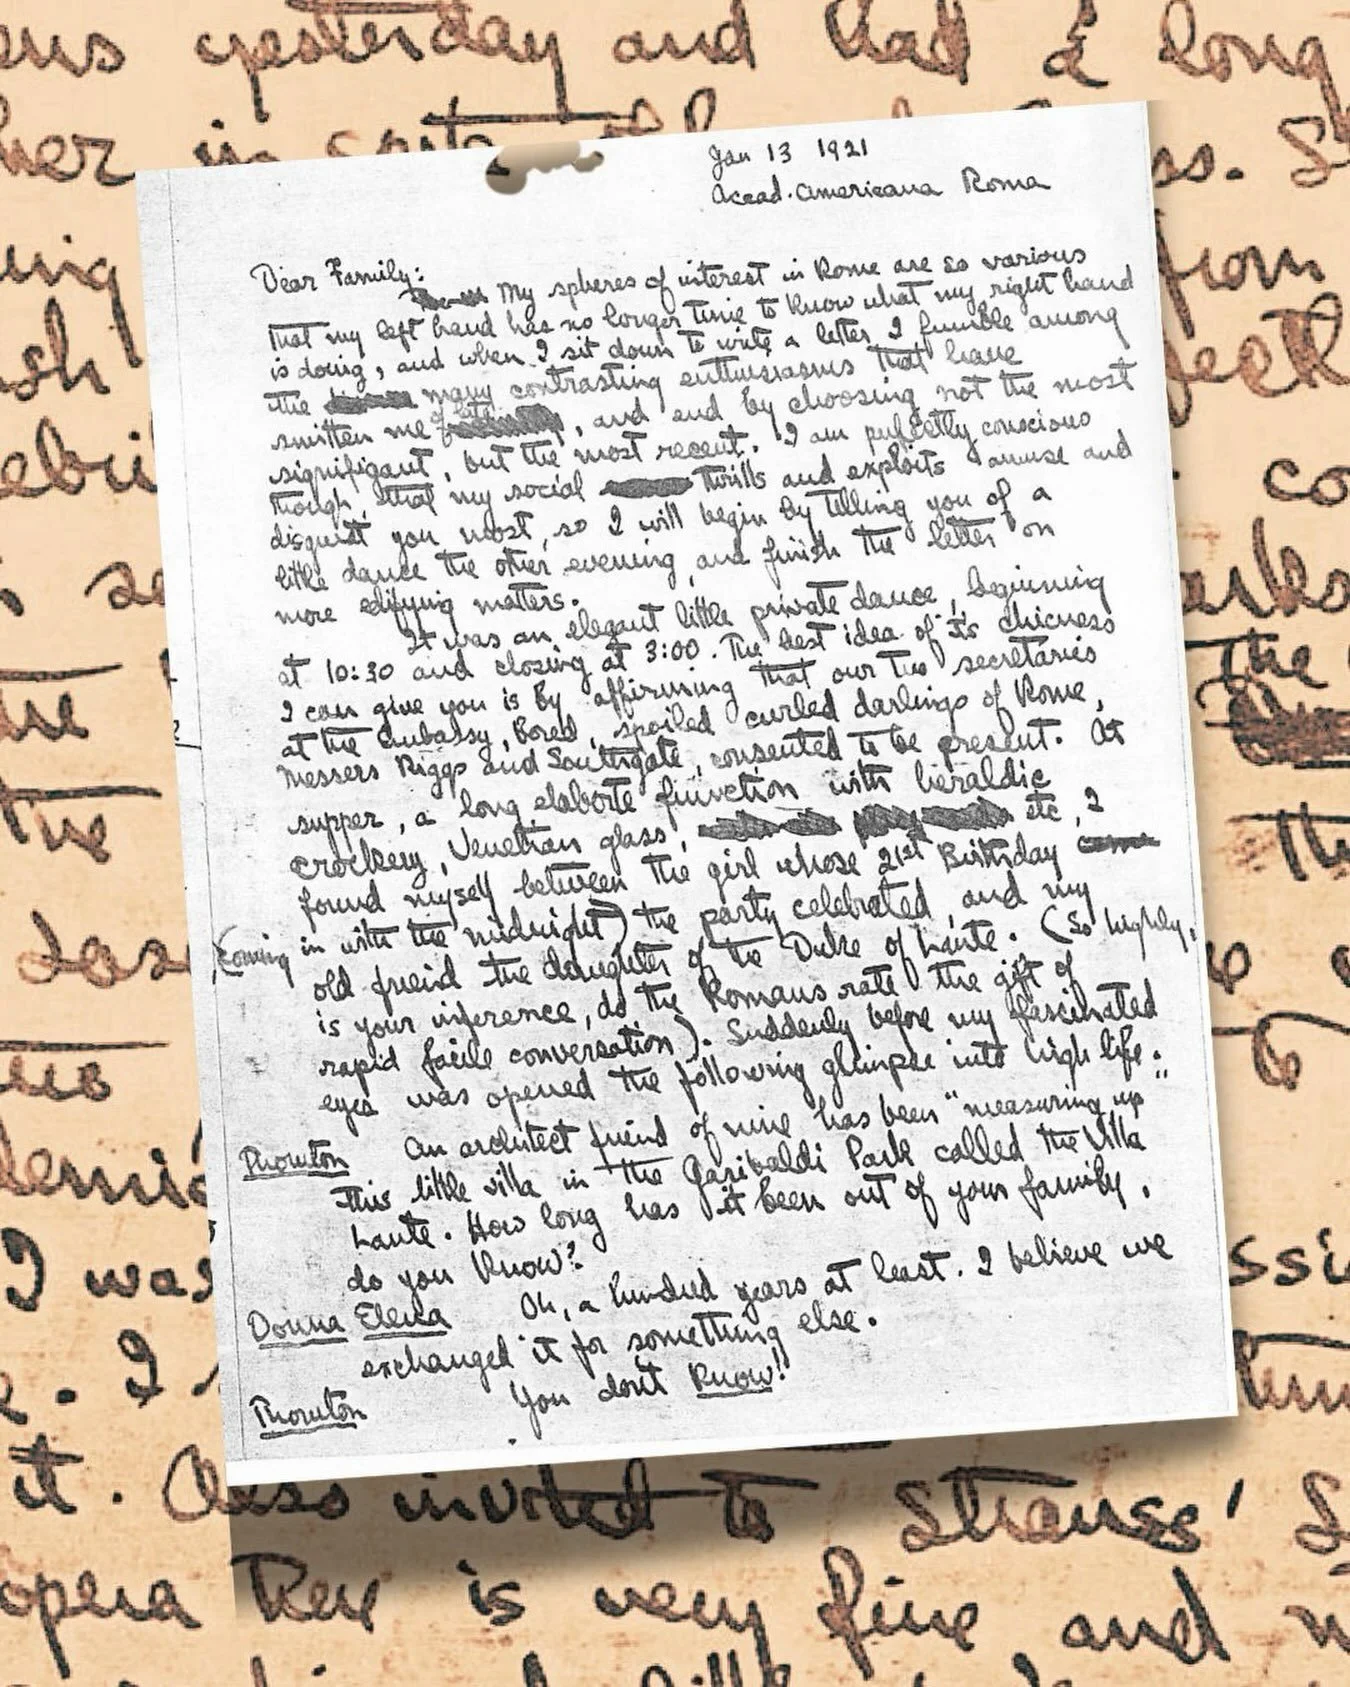 ens yesterday and had a long
her in
Jan 13 1921
Accad. Americana Roma
Dear Family:
My spheres of interest in Rome are so various
that my left hand has no longer time to know what my right hand
is doing, and when I sit down to write a letter I fumble among
the many contrasting enthusiasms that have
smitten me of late, and end by choosing not the most
signifigant, but the most recent. I am perfectly conscious
though, that my social thrills and exploits amuse and
disgust you most, so I will begin by telling you of a
little dance the other evening, and finish the letter on
more edifying matters.
It was an elegant little private dance, beginning
at 10:30 and closing at 3:00. The best idea of its chicness
I can give you is by affirming that our two secretaries
at the Embassy, bored, spoiled curled darlings of Rome,
Messers Riggs and Southgate, consented to be present. At
supper, a long elaborte function with heraldic
crockery, Venetian glass, etc, I
found myself between the girl whose 21st Birthday
(coming in with the midnight) the party celebrated, and my
old freind the daughter of the Duke of Lante. (So highly,
is your inference, do the Romans rate the gift of
rapid facile conversation). Suddenly before my fascinated
eyes was opened the following glimpse into high life.
Thornton An architect friend of mine has been "measuring up"
this little villa in the Garibaldi Park called the Villa
Lante. How long has it been out of your family,
do you know?
Donna Elena Oh, a hundred years at least. I believe we
exchanged it for something else.
Thornton You don't know!!
from
The
the
I was
I
it. Also invited to Strauss'
opera
is very fine and